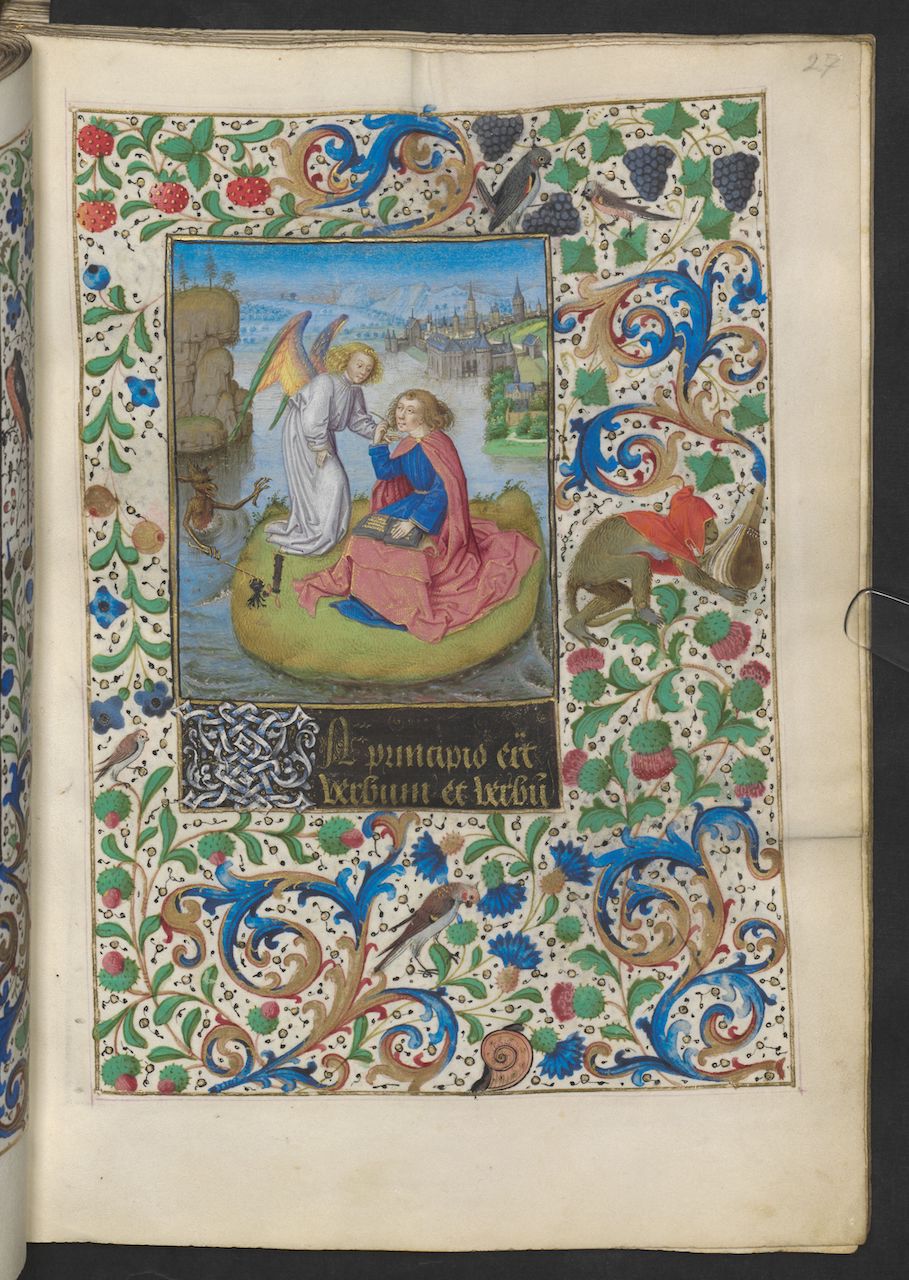 27
IN principio er̄t
verbum et verbū